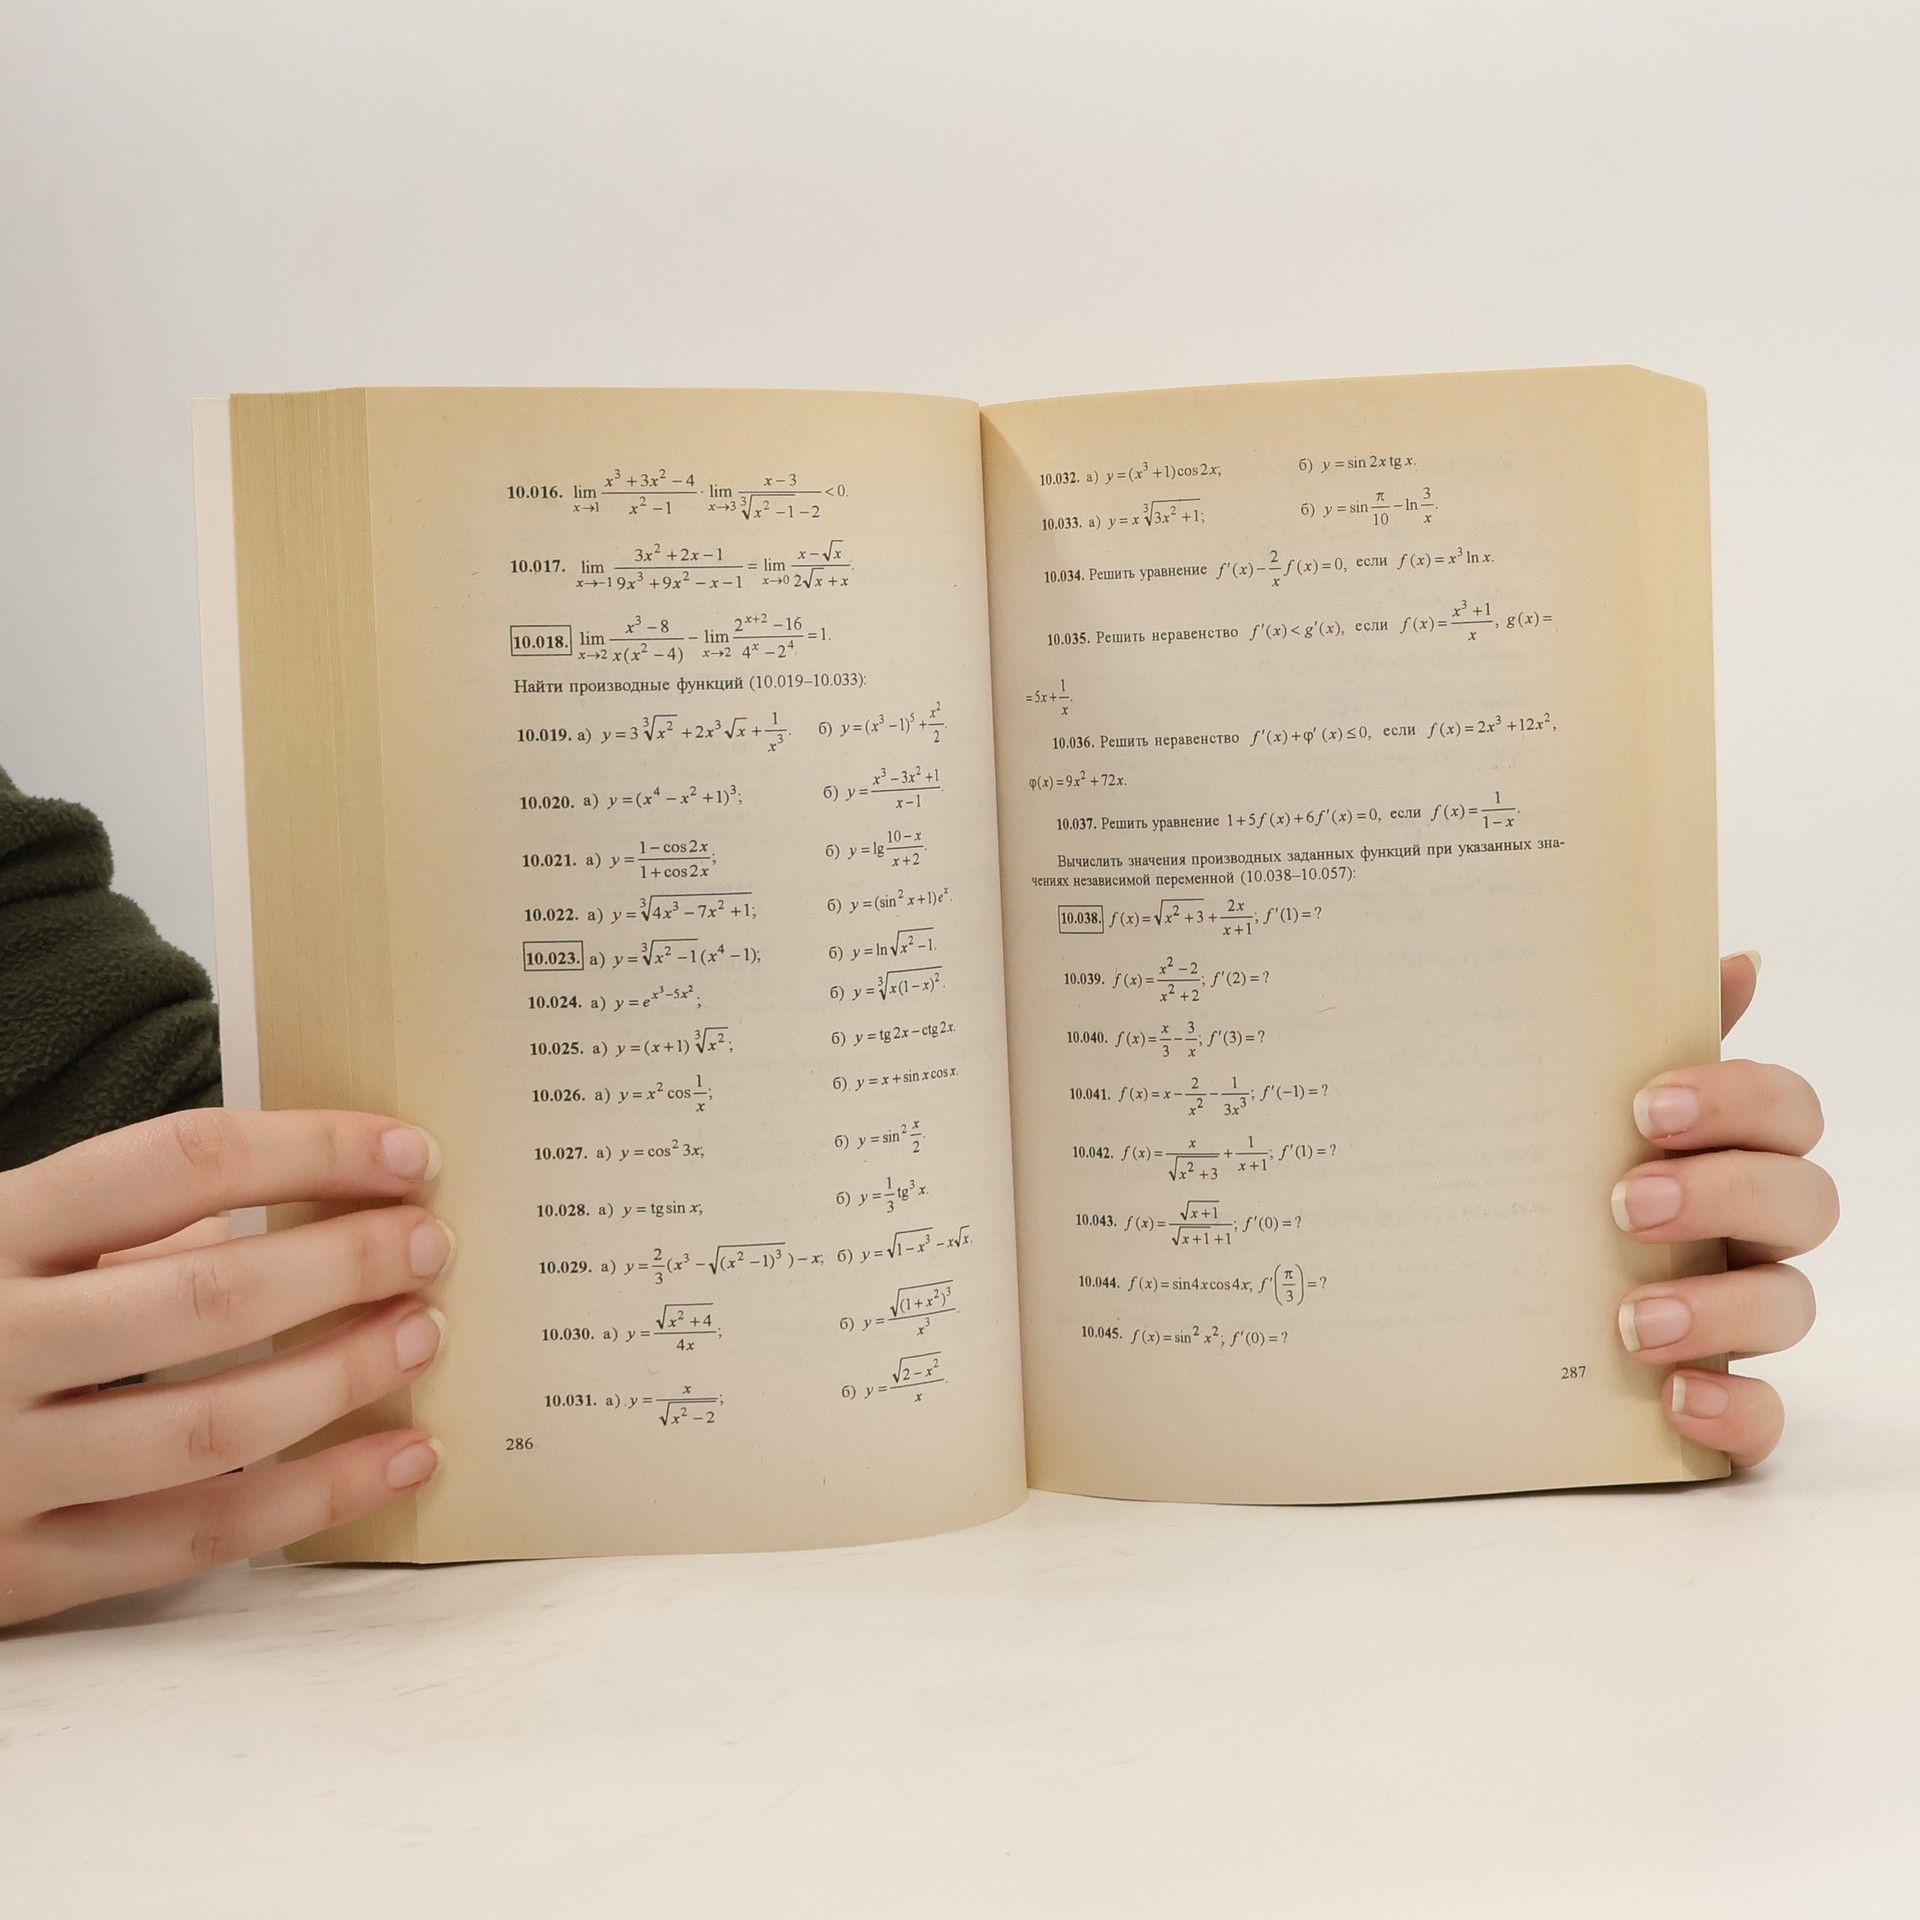 10.016. lim x→1 (x³+3x²−4)/(x²−1) · lim x→3 (x−3)/(∛(x²−1)−2) <0.
10.017. lim x→−1 (3x²+2x−1)/(9x³+9x²−x−1) = lim x→0 (x−√x)/(2√x+x).
10.018. lim x→2 (x³−8)/(x(x²−4)) − lim x→2 (2ˣ⁺²−16)/(4ˣ−2⁴) =1.
Найти производные функций (10.019–10.033):
10.019. а) y=3∛(x²)+2x³√x+1/x³. б) y=(x³−1)⁵+x²/2.
10.020. а) y=(x⁴−x²+1)³; б) y=(x³−3x²+1)/(x−1).
10.021. а) y=(1−cos2x)/(1+cos2x); б) y=lg (10−x)/(x+2).
10.022. а) y=∛(4x³−7x²+1); б) y=(sin² x+1)eˣ.
10.023. а) y=∛(x²−1)(x⁴−1); б) y=ln√(x²−1).
10.024. а) y=e^(x³−5x²); б) y=∛(x(1−x)²).
10.025. а) y=(x+1)∛(x²); б) y=tg2x−ctg2x.
10.026. а) y=x² cos 1/x; б) y=x+sin x cos x.
10.027. а) y=cos² 3x; б) y=sin² x/2.
10.028. а) y=tg sin x; б) y=1/3 tg³ x.
10.029. а) y=2/3(x³−√((x²−1)³))−x; б) y=√(1−x³)−x√x.
10.030. а) y=√(x²+4)/(4x); б) y=√((1+x²)³)/x³.
10.031. а) y=x/√(x²−2); б) y=√(2−x²)/x.
286
10.032. а) y=(x³+1)cos2x; б) y=sin 2x tg x.
10.033. а) y=x∛(3x²+1); б) y=sin π/10−ln 3/x.
10.034. Решить уравнение f′(x)−2/x f(x)=0, если f(x)=x³ ln x.
10.035. Решить неравенство f′(x)<g′(x), если f(x)=(x³+1)/x, g(x)=
=5x+1/x.
10.036. Решить неравенство f′(x)+φ′(x)≤0, если f(x)=2x³+12x²,
φ(x)=9x²+72x.
10.037. Решить уравнение 1+5f(x)+6f′(x)=0, если f(x)=1/(1−x).
Вычислить значения производных заданных функций при указанных зна-
чениях независимой переменной (10.038–10.057):
10.038. f(x)=√(x²+3)+2x/(x+1); f′(1)=?
10.039. f(x)=(x²−2)/(x²+2); f′(2)=?
10.040. f(x)=x/3−3/x; f′(3)=?
10.041. f(x)=x−2/x²−1/(3x³); f′(−1)=?
10.042. f(x)=x/√(x²+3)+1/(x+1); f′(1)=?
10.043. f(x)=√(x+1)/(√(x+1)+1); f′(0)=?
10.044. f(x)=sin4x cos4x; f′(π/3)=?
10.045. f(x)=sin² x²; f′(0)=?
287